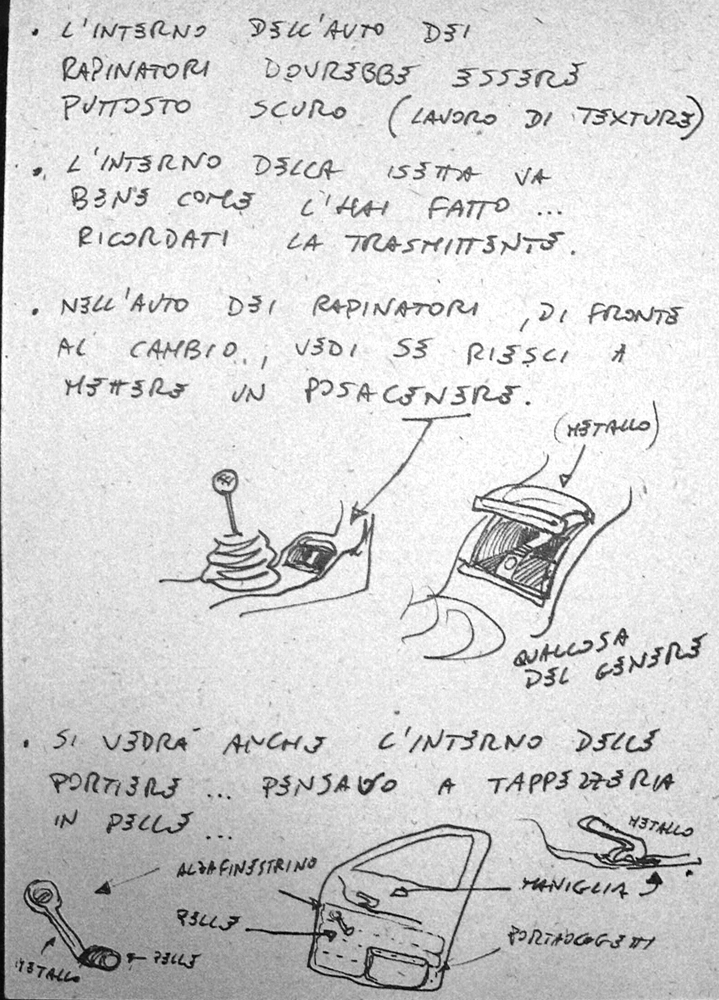 • L'INTERNO DELL'AUTO DEI
RAPINATORI DOVREBBE ESSERE
PUTTOSTO SCURO (LAVORO DI TEXTURE)
• L'INTERNO DELLA ISETTA VA
BENE COME L'HAI FATTO ...
RICORDATI LA TRASMITTENTE.
• NELL'AUTO DEI RAPINATORI, DI FRONTE
AL CAMBIO, VEDI SE RIESCI A
METTERE UN POSACENERE.
(METALLO)
QUALCOSA
DEL GENERE
• SI VEDRÀ ANCHE L'INTERNO DELLE
PORTIERE ... PENSAVO A TAPPEZZERIA
IN PELLE ...
METALLO
ALZAFINESTRINO
MANIGLIA
PELLE
PORTAOGGETTI
METALLO
PELLE